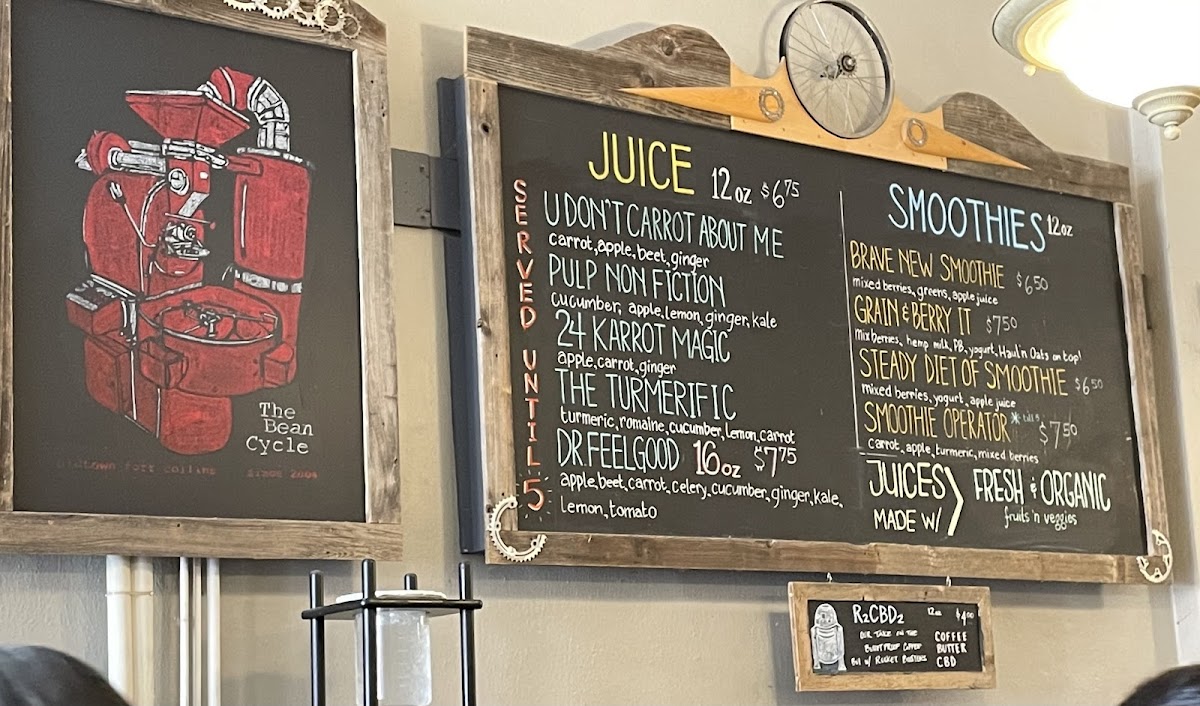 The
Bean
Cycle
oldtown fort collins since 2004
JUICE 12oz $6.75
SERVED UNTIL 5
U DON'T CARROT ABOUT ME
carrot, apple, beet, ginger
PULP NON FICTION
cucumber, apple, lemon, ginger, kale
24 KARROT MAGIC
apple, carrot, ginger
THE TURMERIFIC
turmeric, romaine, cucumber, lemon, carrot
DR. FEELGOOD 16oz $7.75
apple, beet, carrot, celery, cucumber, ginger, kale,
lemon, tomato
SMOOTHIES 12oz
BRAVE NEW SMOOTHIE $6.50
mixed berries, greens, apple juice
GRAIN & BERRY IT $7.50
mix berries, hemp milk, PB, yogurt, Haul'n Oats on top!
STEADY DIET OF SMOOTHIE $6.50
mixed berries, yogurt, apple juice
SMOOTHIE OPERATOR * till 5 $7.50
carrot, apple, turmeric, mixed berries
JUICES MADE W/ FRESH & ORGANIC
fruits 'n veggies
R2CBD2 12oz $4.00
OUR TAKE ON THE
BULLETPROOF COFFEE
BUT W/ ROCKET BOOSTERS
COFFEE
BUTTER
CBD